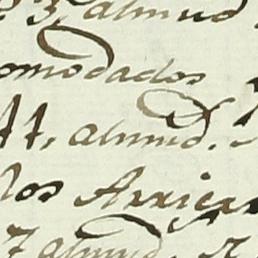 3, almud
omodados
11, almud.
los Arrier
7 almud.